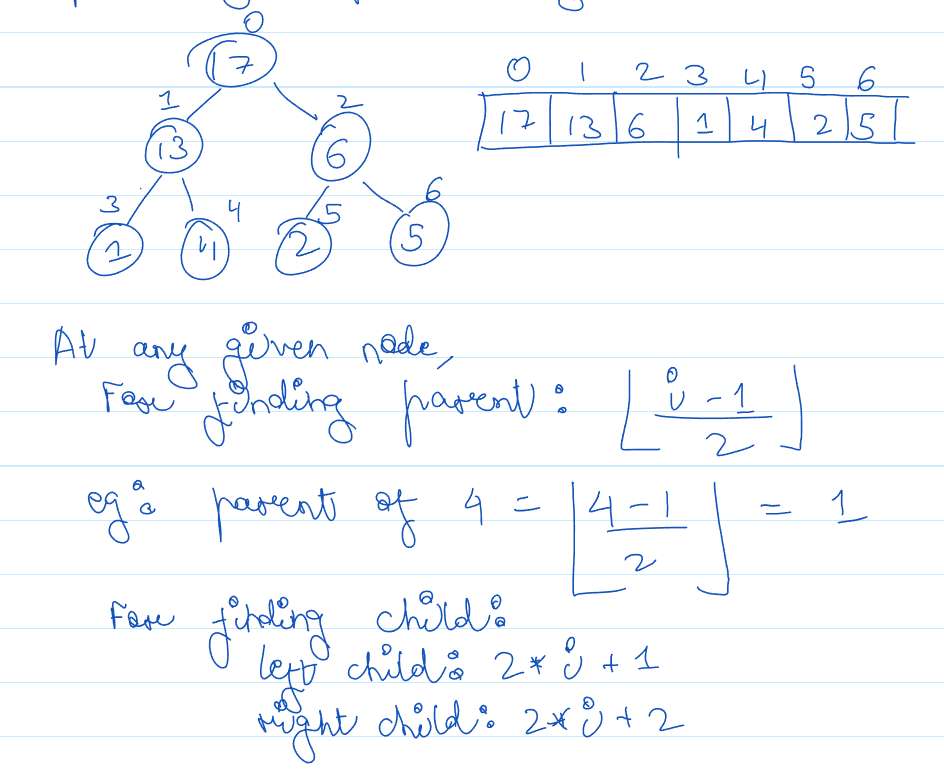 0
17
0 1 2 3 4 5 6
17 13 6 1 4 2 5
1 2
13 6
3 4 5 6
1 4 2 5
At any given node,
For finding parent: ⌊(i - 1)/2⌋
eg: parent of 4 = ⌊(4 - 1)/2⌋ = 1
For finding child:
left child: 2 * i + 1
right child: 2 * i + 2